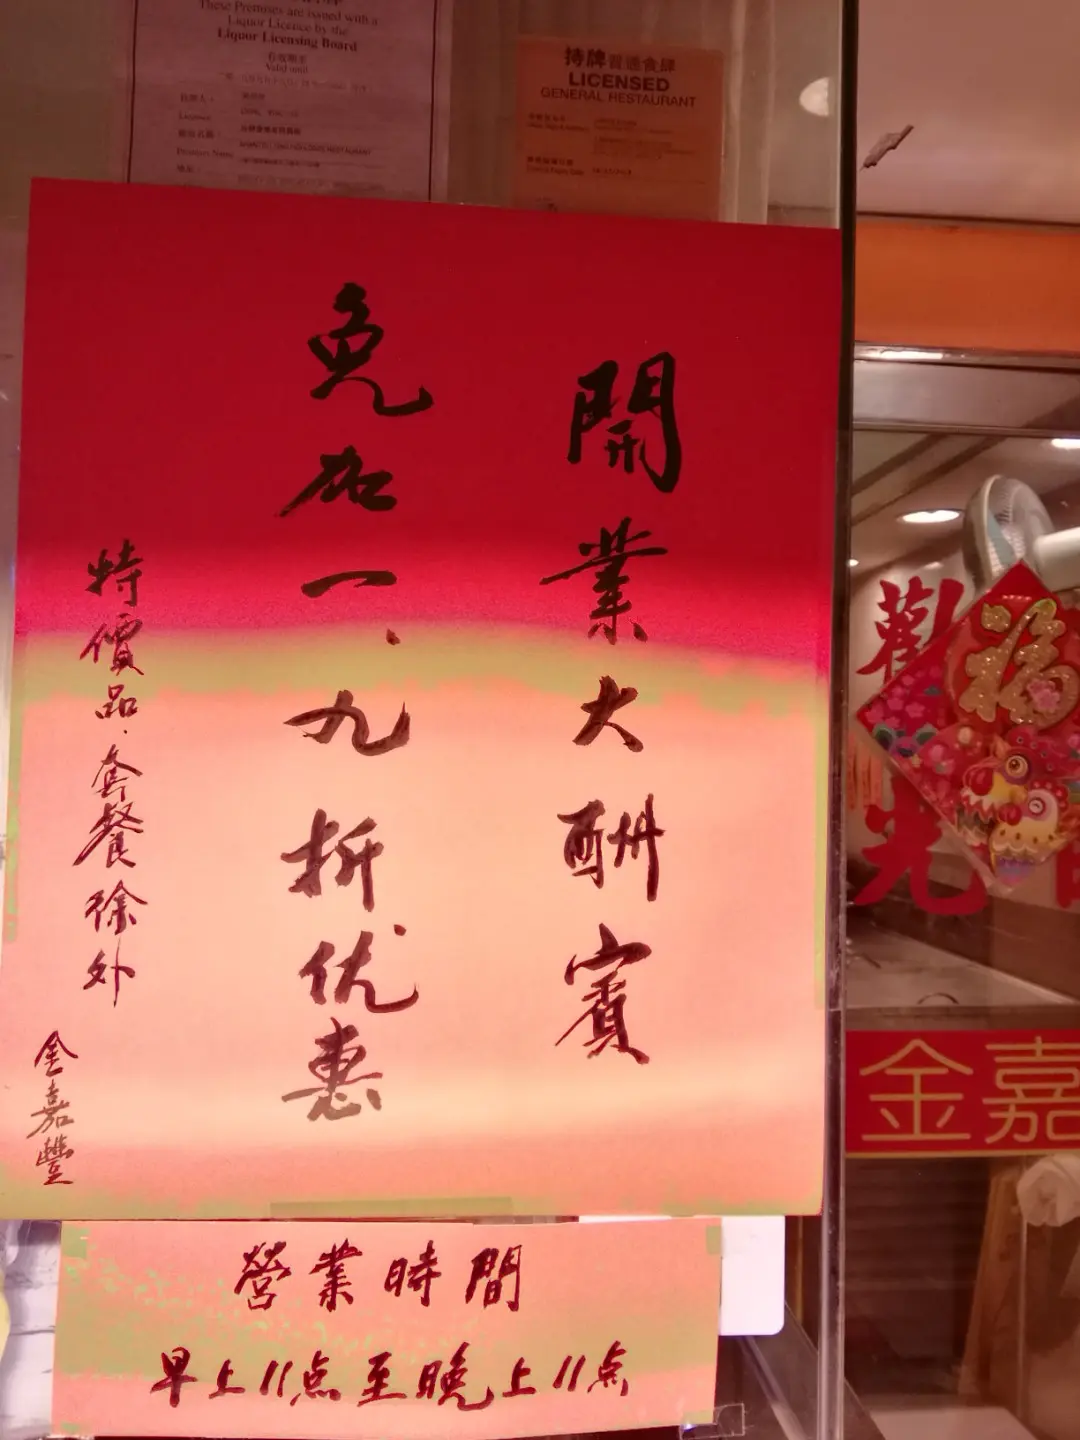 These Premises are issued with a
Liquor Licence by the
Liquor Licensing Board
有效期至
Valid until
持牌普通食肆
LICENSED
GENERAL RESTAURANT
開業大酬賓
免加一、九折优惠
特價品.套餐徐外
金嘉豐
營業時間
早上11点至晚上11点
觀
光
福
金嘉